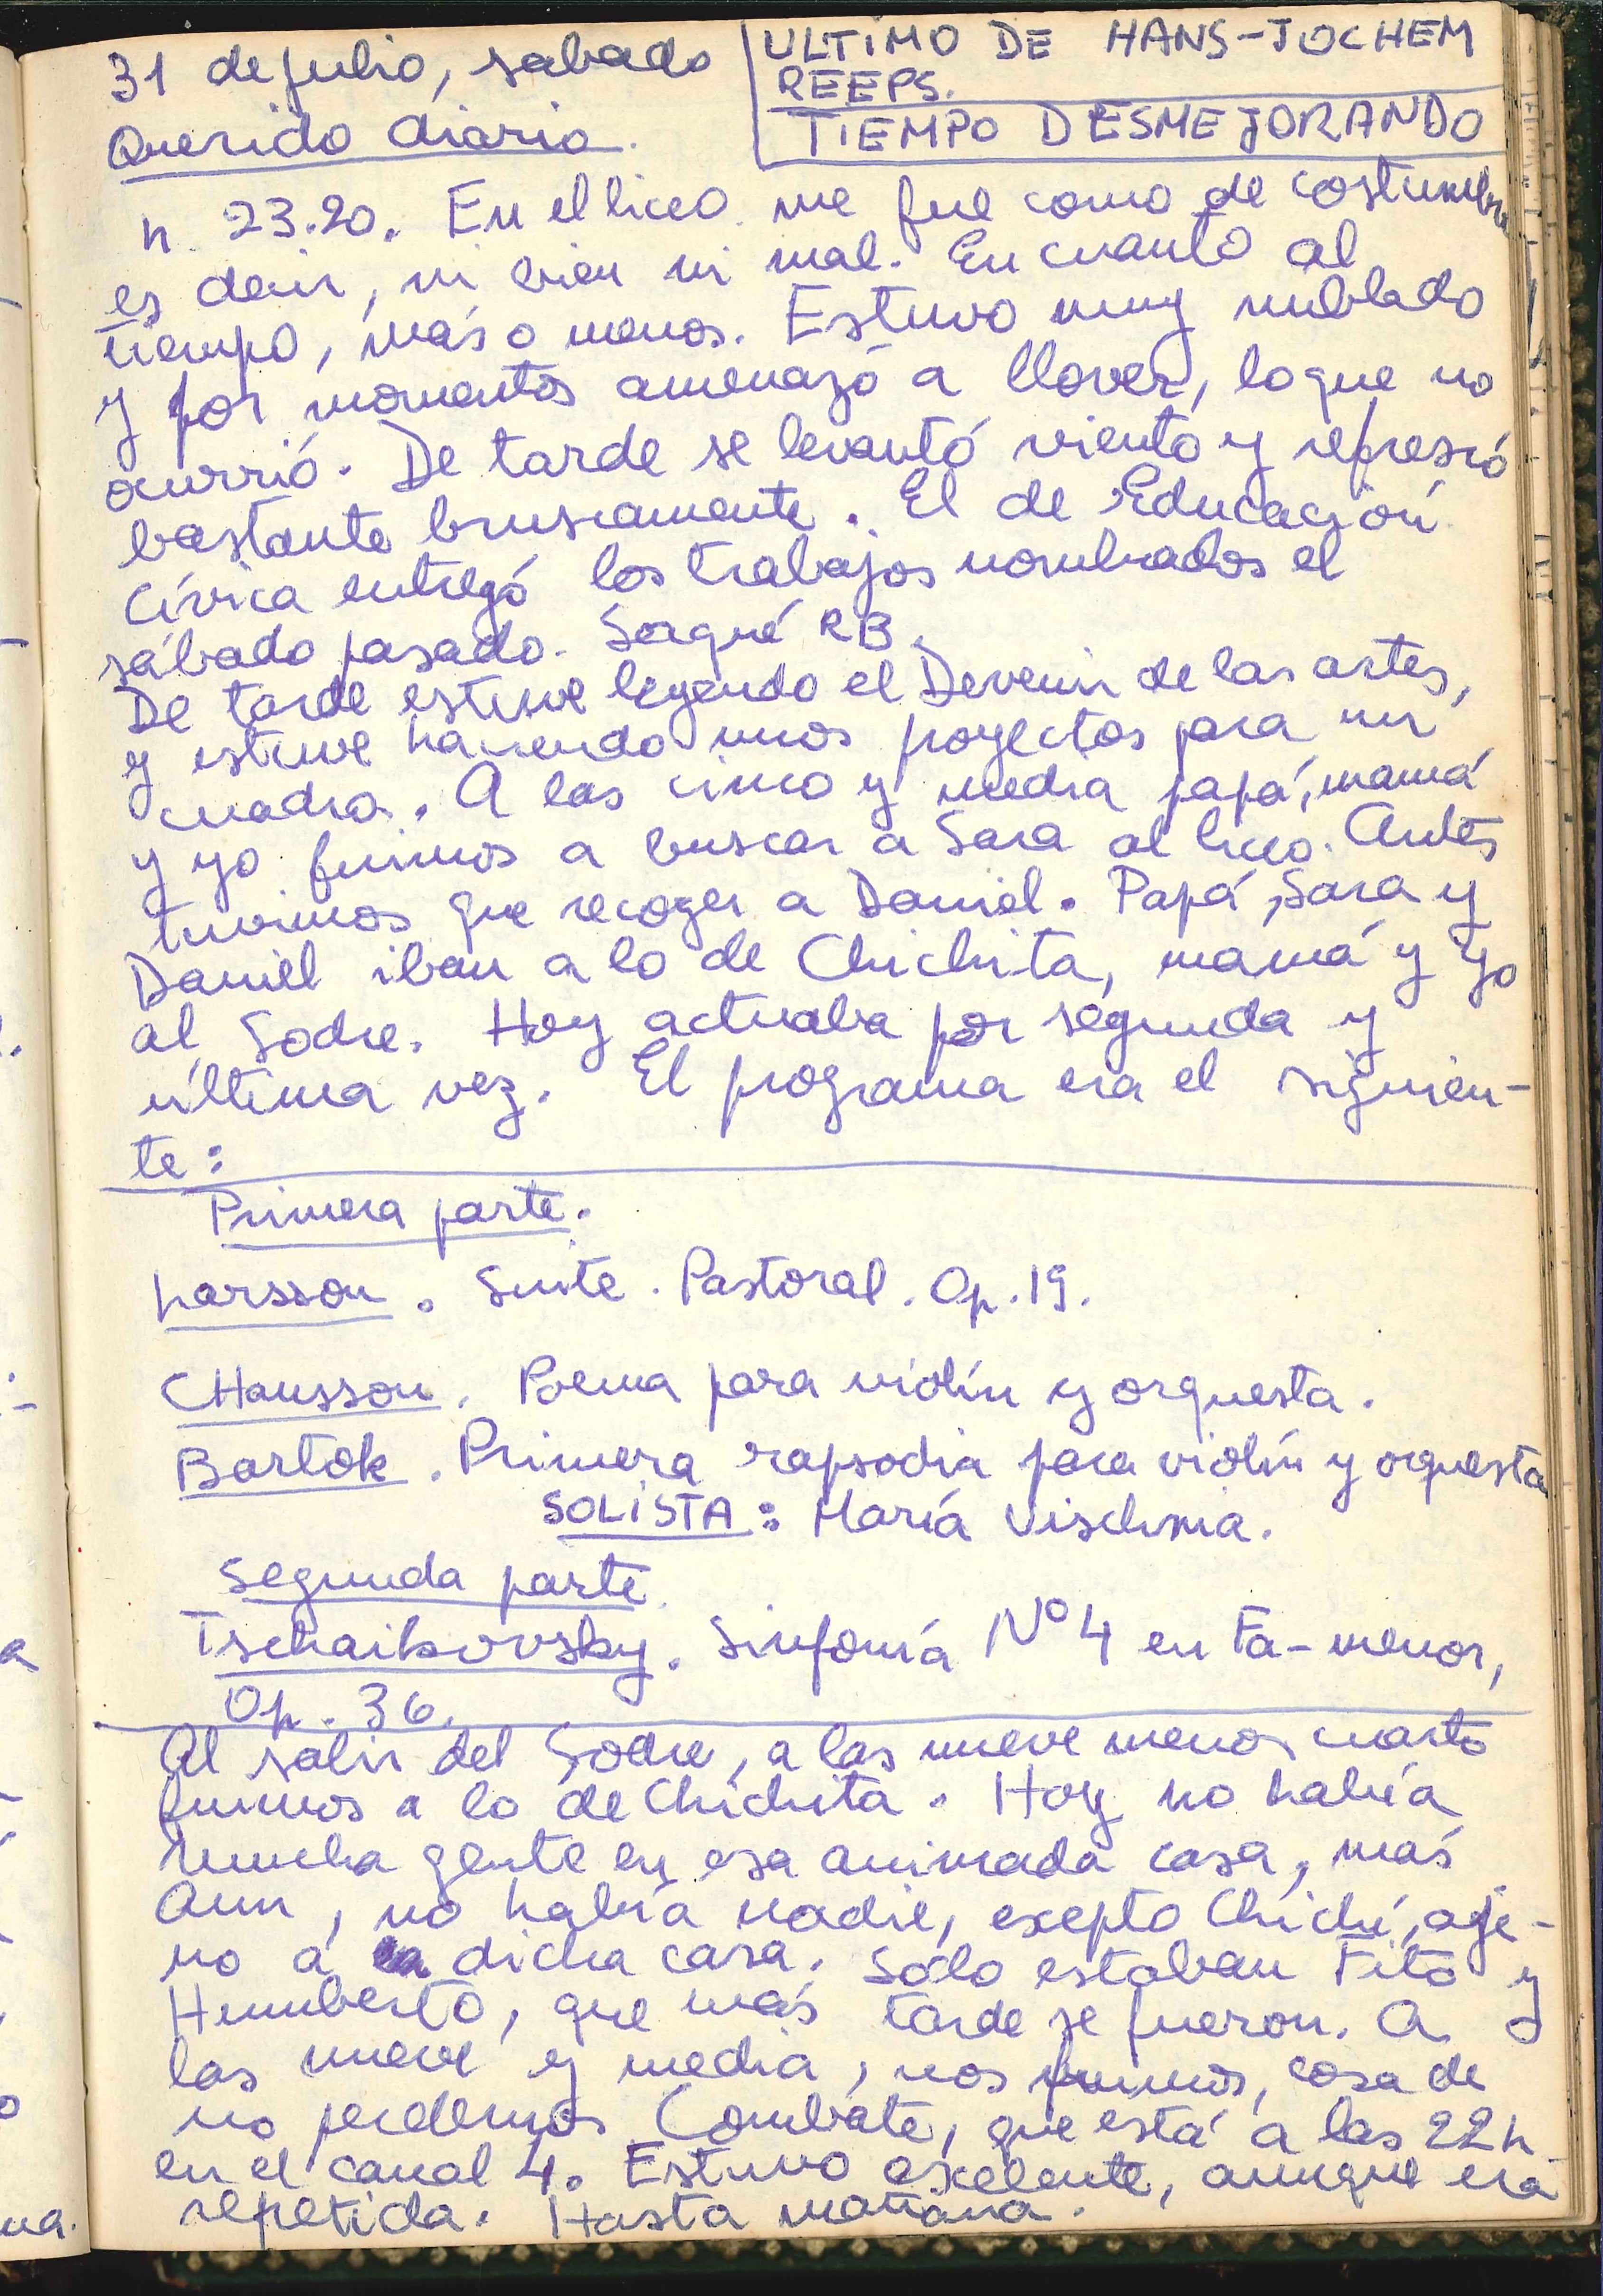 31 de julio, sabado
Querido diario.
ULTIMO DE HANS-JOCHEM
REEPS.
TIEMPO DESMEJORANDO
h. 23.20. En el liceo me fue como de costumbre
es decir, ni bien ni mal. En cuanto al
tiempo, más o menos. Estuvo muy nublado
y por momentos amenazó a llover, lo que no
ocurrió. De tarde se levantó viento y refrescó
bastante bruscamente. El de Educación
Cívica entregó los trabajos nombrados el
sábado pasado. Saqué RB.
De tarde estuve leyendo el Devenir de las artes,
y estuve haciendo unos proyectos para un
cuadro. A las cinco y media papá, mamá
y yo fuimos a buscar a Sara al liceo. Antes
tuvimos que recoger a Daniel. Papá, Sara y
Daniel iban a lo de Chichita, mamá y yo
al Sodre. Hoy actuaba por segunda y
última vez. El programa era el siguien-
te:
Primera parte.
Larsson. Suite. Pastoral. Op. 19.
CHausson. Poema para violín y orquesta.
Bartok. Primera rapsodia para violín y orquesta
SOLISTA: María Vischnia.
Segunda parte
Tschaikovsky. Sinfonía Nº 4 en Fa-menor,
Op. 36.
Al salir del Sodre, a las nueve menos cuarto
fuimos a lo de Chichita. Hoy no había
mucha gente en esa animada casa, más
aun, no había nadie, exepto Chichí, aje-
no a dicha casa. Sólo estaban Fito y
Humberto, que más tarde se fueron. A
las nueve y media, nos fuimos, cosa de
no perdernos Combate, que está a las 22h
en el canal 4. Estuvo exelente, aunque era
repetida. Hasta mañana.